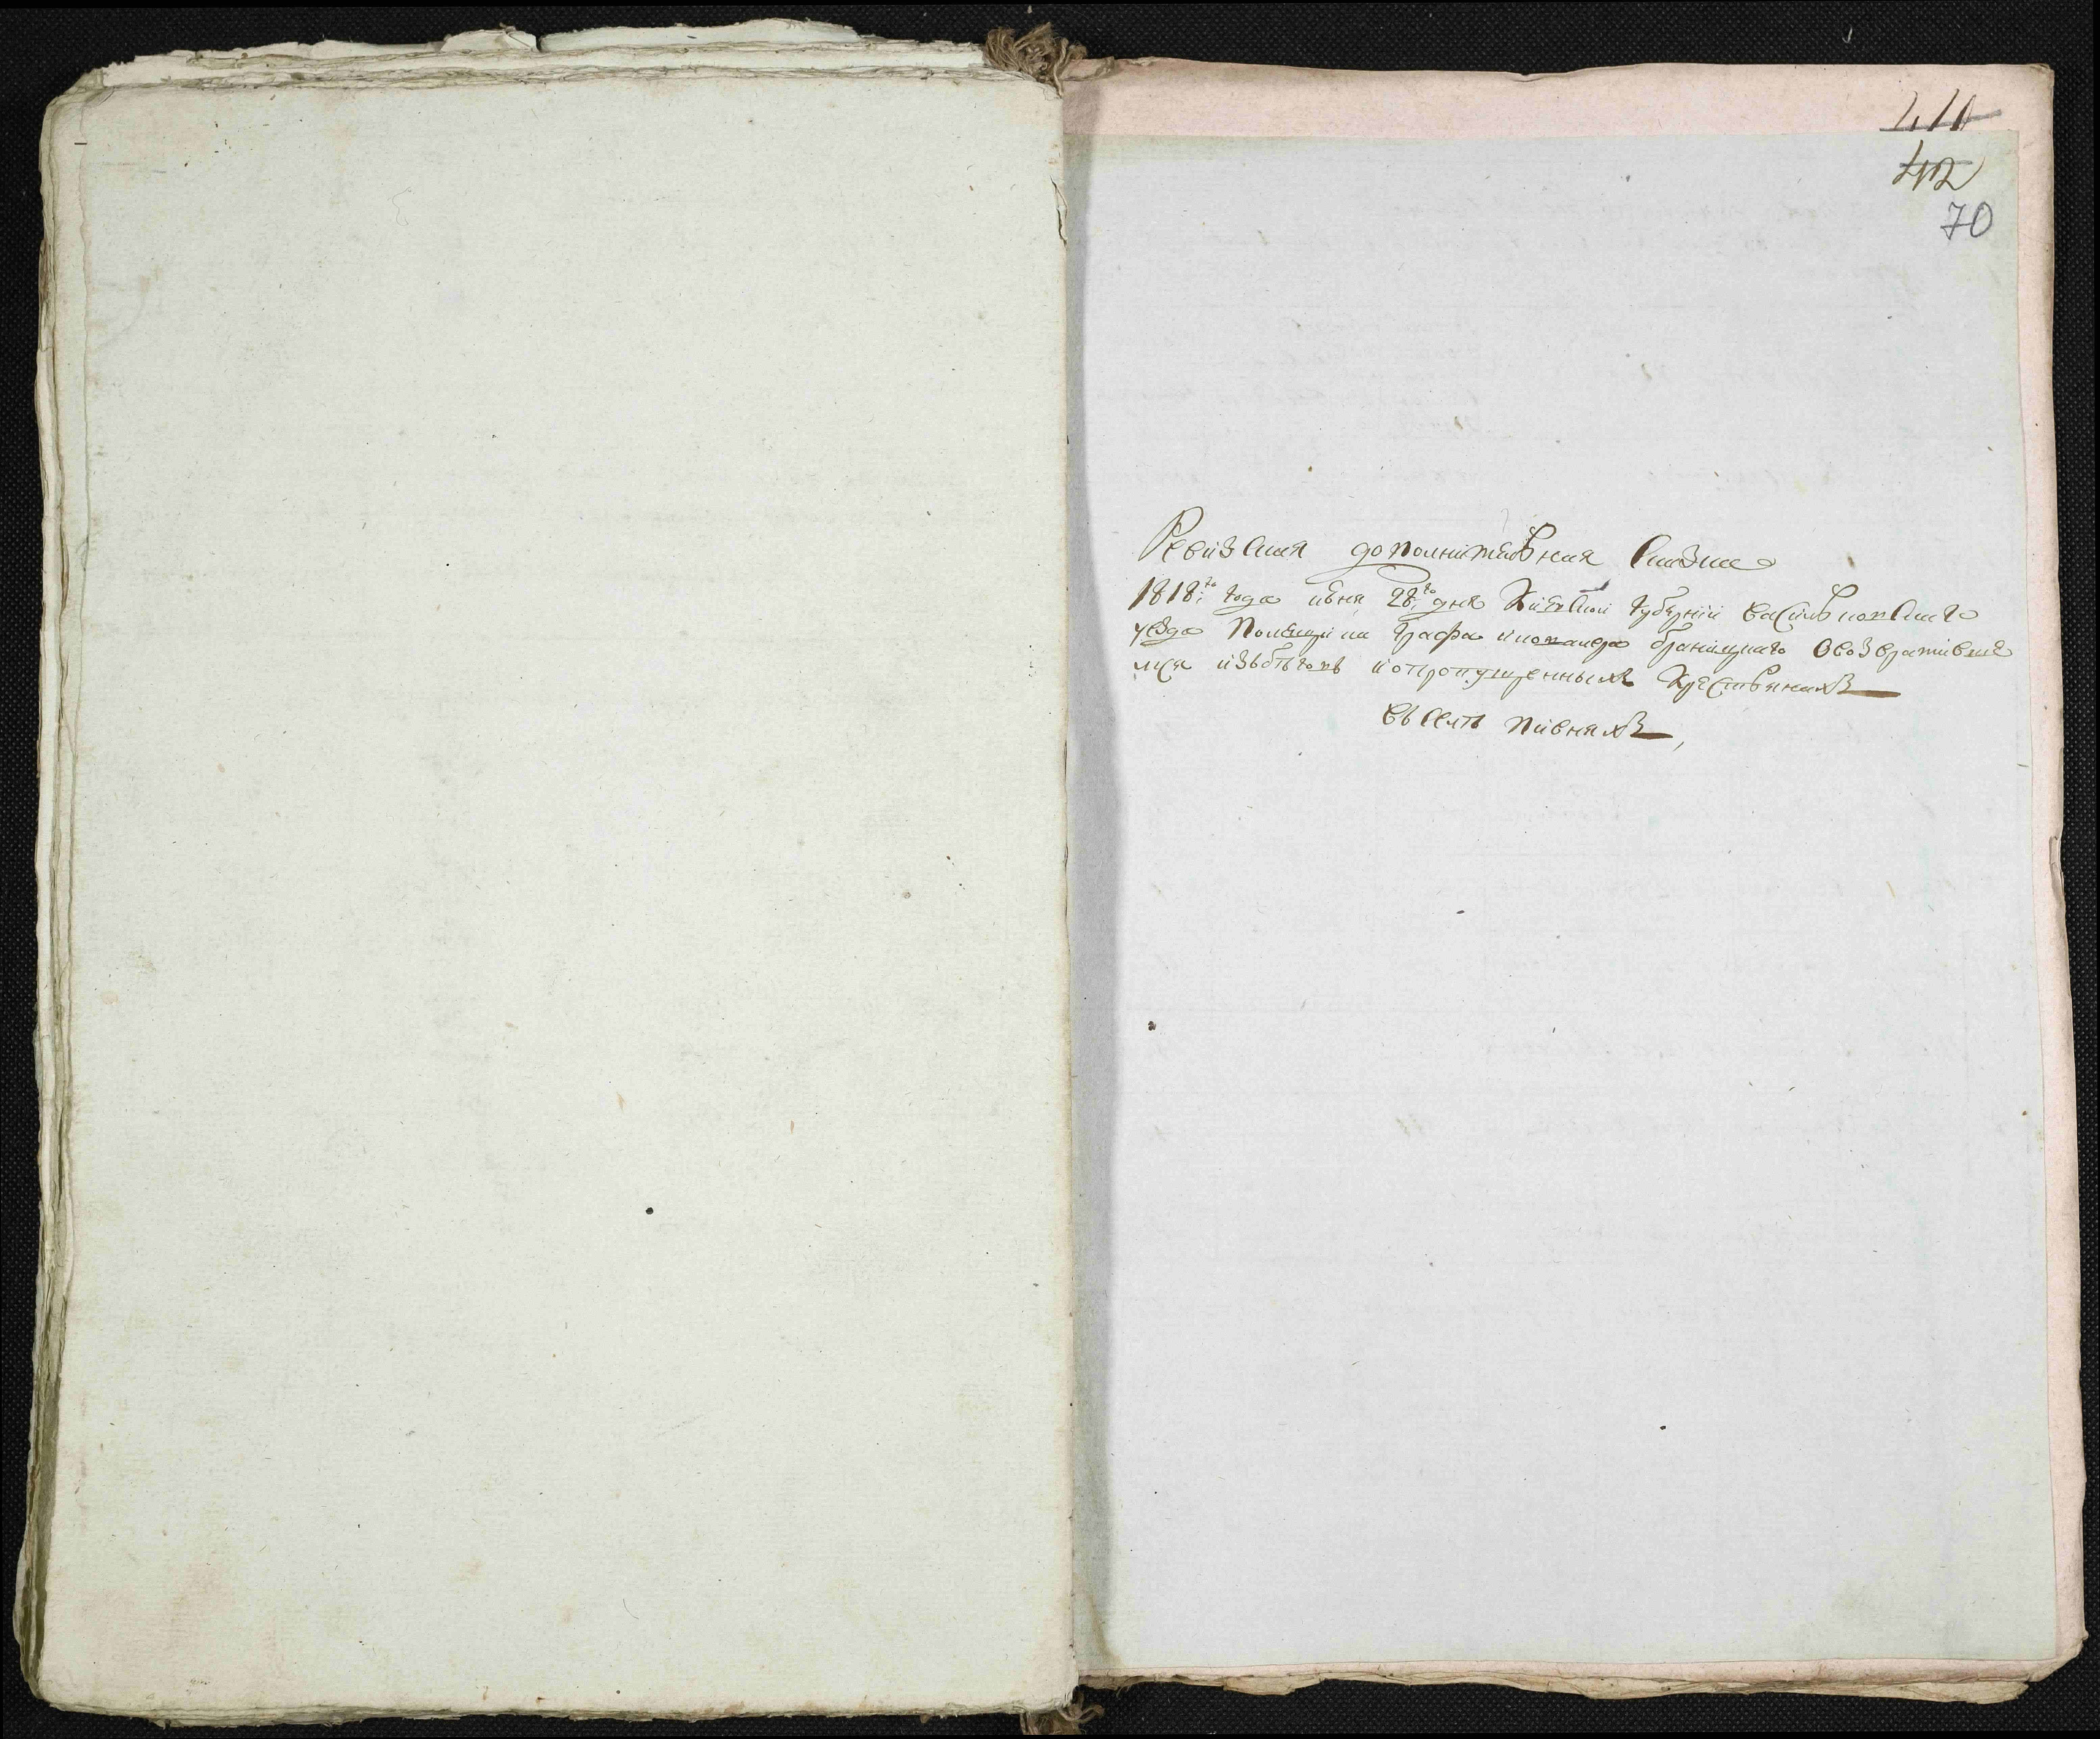 41
42
70
Ревизская дополнительная Сказка
1818:го года июня 28:го дня Киевской губернии васильковскаго
уезда Помещика Графа и кавалера браницкаго Овозвративши
мся избѣговъ и опропущенныхъ Крестьянахъ
въ Селѣ Пивняхъ,